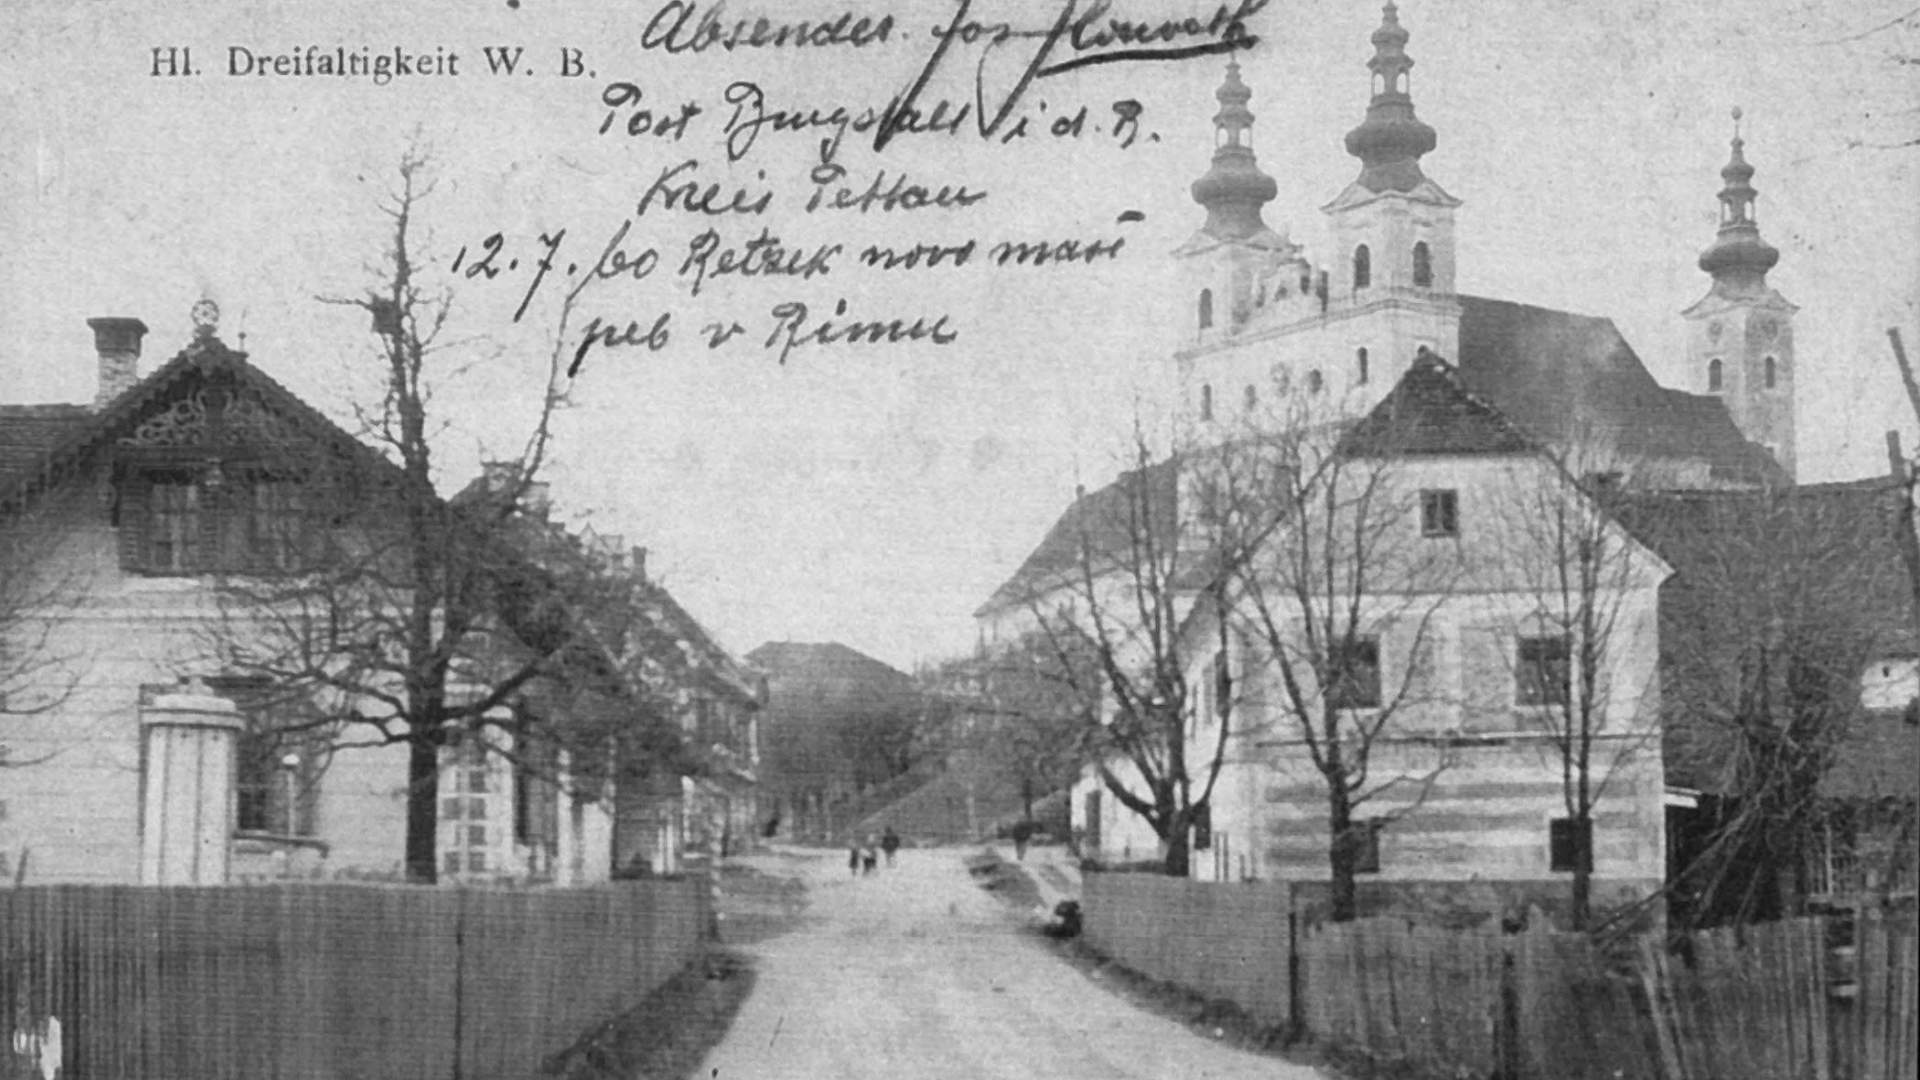 Hl. Dreifaltigkeit W. B.
Absender. Jos Horvath
Post Burgstall i d. B.
Kreis Pettau
12.7. 60 Retzek novo maši
peb v Rimu